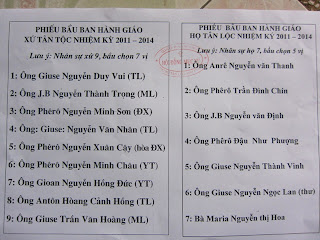 PHIẾU BẦU BAN HÀNH GIÁO
XỨ TÂN LỘC NHIỆM KỲ 2011 – 2014
Lưu ý: Nhân sự xứ 9, bầu chọn 7 vị
1: Ông Giuse Nguyễn Duy Vui (TL)
2: Ông J.B Nguyễn Thành Trọng (ML)
3: Ông Phêrô Nguyễn Minh Sơn (ĐX)
4: Ông: Giuse: Nguyễn Văn Nhân (TL)
5: Ông Phêrô Nguyễn Xuân Cậy (hòa ĐX)
6: Ông Phêrô Nguyễn Minh Châu (YT)
7: Ông Gioan Nguyễn Hồng Đức (YT)
8: Ông Antôn Hoàng Cảnh Hồng (TL)
9: Ông Giuse Trần Văn Hoàng (ML)
PHIẾU BẦU BAN HÀNH GIÁO
HỌ TÂN LỘC NHIỆM KỲ 2011 – 2014
Lưu ý: Nhân sự họ 7, bầu chọn 5 vị
1: Ông Anrê Nguyễn văn Thanh
2: Ông Phêrô Trần Đình Chín
3: Ông J.B Nguyễn văn Định
4: Ông Phêrô Đậu Như Phượng
5: Ông Giuse Nguyễn Thành Vinh
6: Ông Giuse Nguyễn Ngọc Lan (thư)
7: Bà Maria Nguyễn thị Hoa